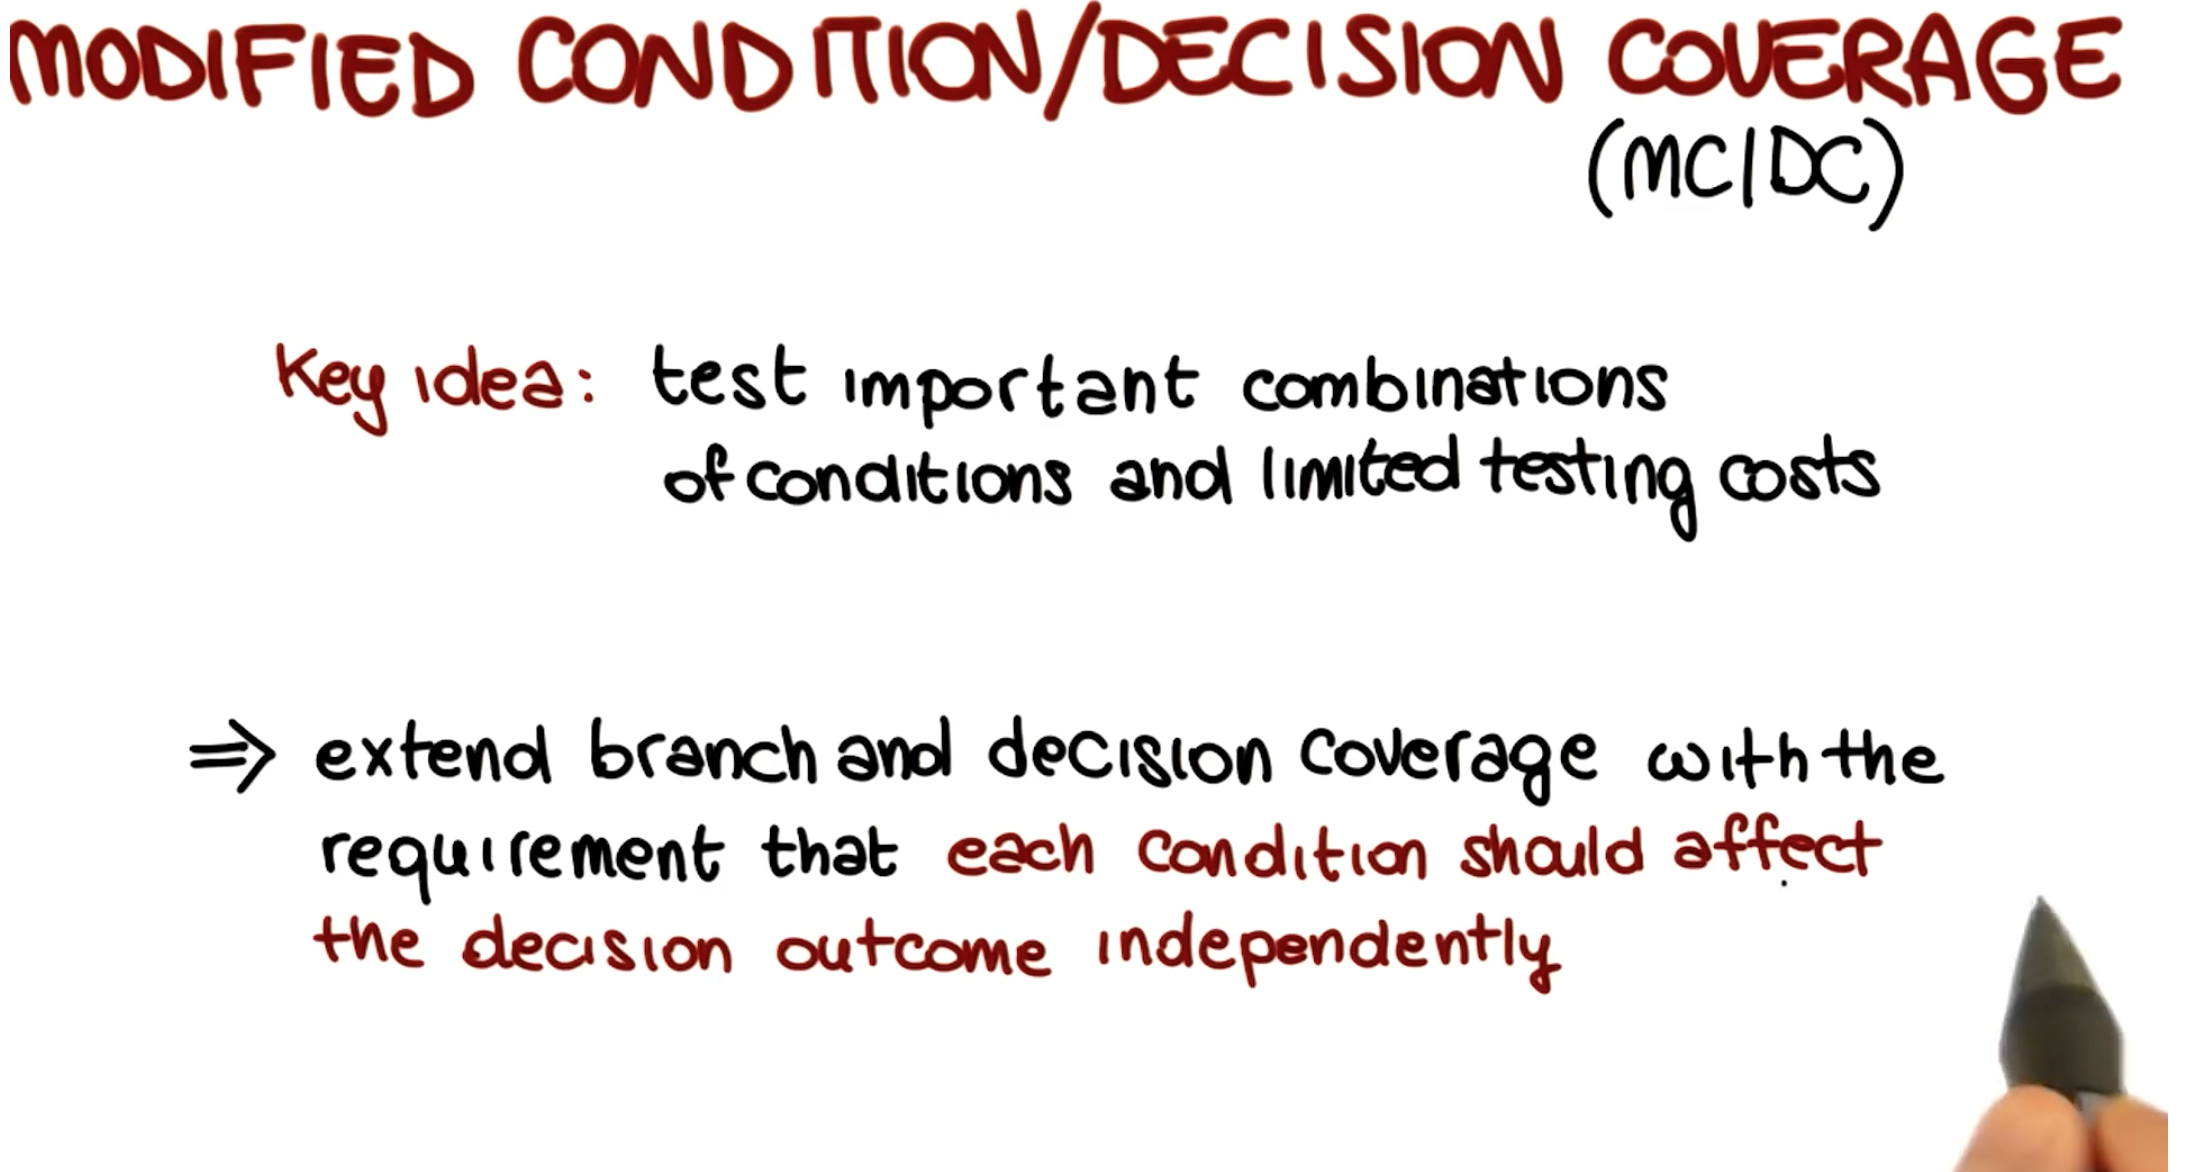 MODIFIED CONDITION/DECISION COVERAGE
(MC/DC)
Key idea: test important combinations
of conditions and limited testing costs
⇒ extend branch and decision coverage with the
requirement that each condition should affect
the decision outcome independently